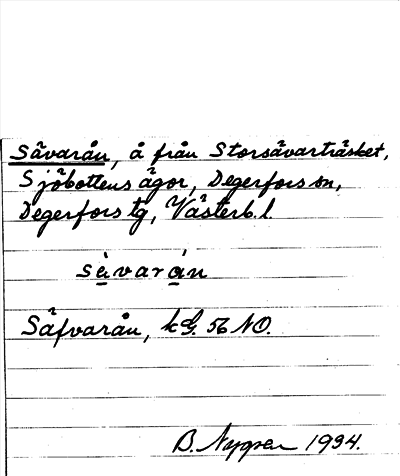 Sävarån, å från Storsävarträsket,
Sjöbottens ägor, Degerfors sn,
Degerfors tg, Västerb. l.
sè̱vara̱n
Säfvarån, kG. 56 NO.
B. Nygren 1934.